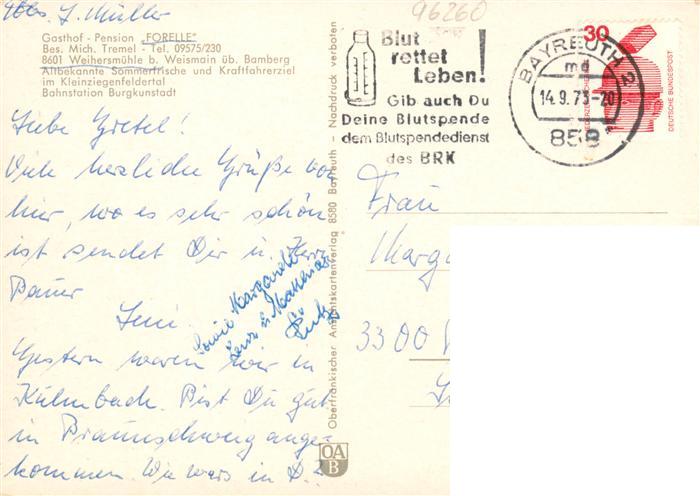 Abs. J. Müller
Gasthof - Pension „FORELLE"
Bes. Mich. Tremel - Tel. 09575/230
8601 Weihersmühle b. Weismain üb. Bamberg
Altbekannte Sommerfrische und Kraftfahrerziel
im Kleinziegenfeldertal
Bahnstation Burgkunstadt
Liebe Gretel!
Viele herzliche Grüße von
hier, wo es sehr schön
ist sendet Dir u. Herr
Bauer
Sowie Margarete
Jens u. Matthias
Gestern waren wir in
Kulmbach. Bist Du gut
in Braunschweig ange-
kommen. Wie wars in D.?
Oberfränkischer Ansichtskartenverlag 8580 Bayreuth - Nachdruck verboten
OA
B
96260
Blut
rettet
Leben!
Gib auch Du
Deine Blutspende
dem Blutspendedienst
des BRK
BAYREUTH 2
md
14.9.73-20
858
30
DEUTSCHE BUNDESPOST
Frau
Marga
3300